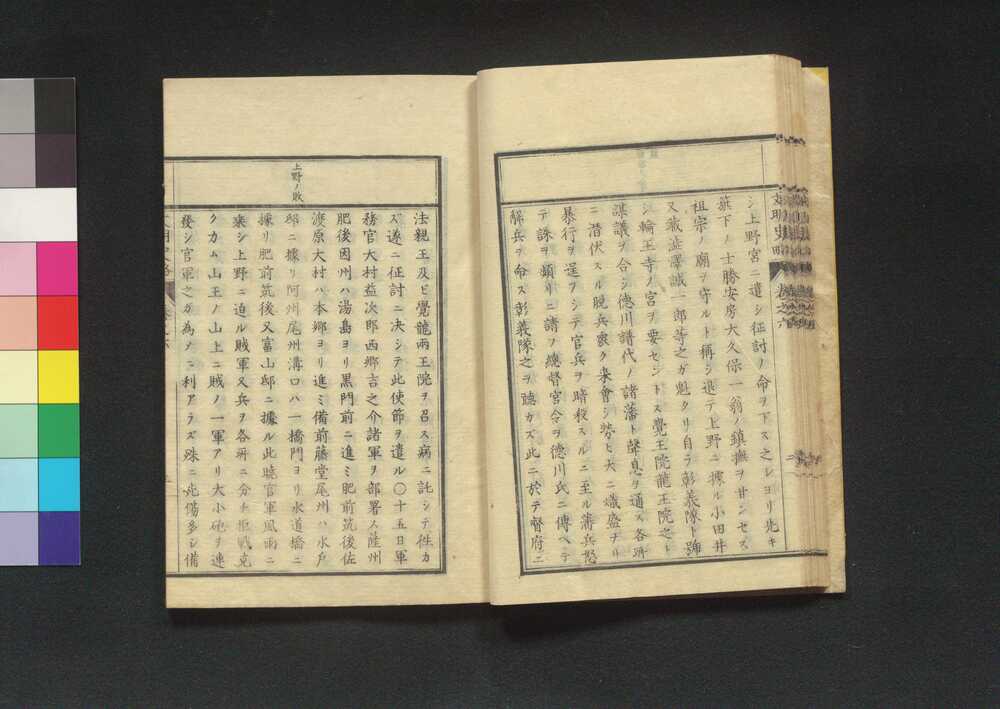 文明史略 巻之六
シ上野宮ニ遣シ征討ノ命ヲ下ス之レヨリ先キ
旗下ノ士勝安房大久保一翁ノ鎮撫ヲ甘ンセス
祖宗ノ廟ヲ守ルト稱シ退テ上野ニ據ル小田井
又藏澁澤誠一郎等之ガ魁タリ自ラ彰義隊ト號
シ輪王寺ノ宮ヲ要セントス覺王院龍王院之ト
謀議ヲ合シ德川譜代ノ諸藩ト聲息ヲ通ス各所
ニ潜伏スル脱兵衆ク來會シ勢ヒ大ニ熾盛ナリ
暴行ヲ逞フシテ官兵ヲ暗殺スルニ至ル薄兵怒
テ誅ヲ頻リニ請フ總督宮令ヲ德川氏ニ傳ヘテ
解兵ヲ命ス彰義隊之ヲ聽カズ此ニ於テ督府ニ
上野ノ敗
法親王及ビ覺龍兩王院ヲ召ス病ニ託シテ往カ
ズ遂ニ征討ニ决シテ此使節ヲ遣ル〇十五日軍
務官大村益次郎西郷吉之介諸軍ヲ部署ス薩州
肥後因州ハ湯島ヨリ黒門前ニ進ミ肥前筑後佐
渡原大村ハ本郷ヨリ進ミ備前藤堂尾州ハ水戸
邸ニ據リ阿州尾州溝口ハ一橋門ヨリ水道橋ニ
據リ肥前筑後又富山邸ニ據ル此曉官軍風雨ニ
乗シ上野ニ迫ル賊軍又兵ヲ各所ニ分チ拒戰克
クカム山王ノ山上ニ賊ノ一軍アリ大小砲ヲ連
發シ官軍之ガ為メニ利アラズ殊ニ死傷多シ備